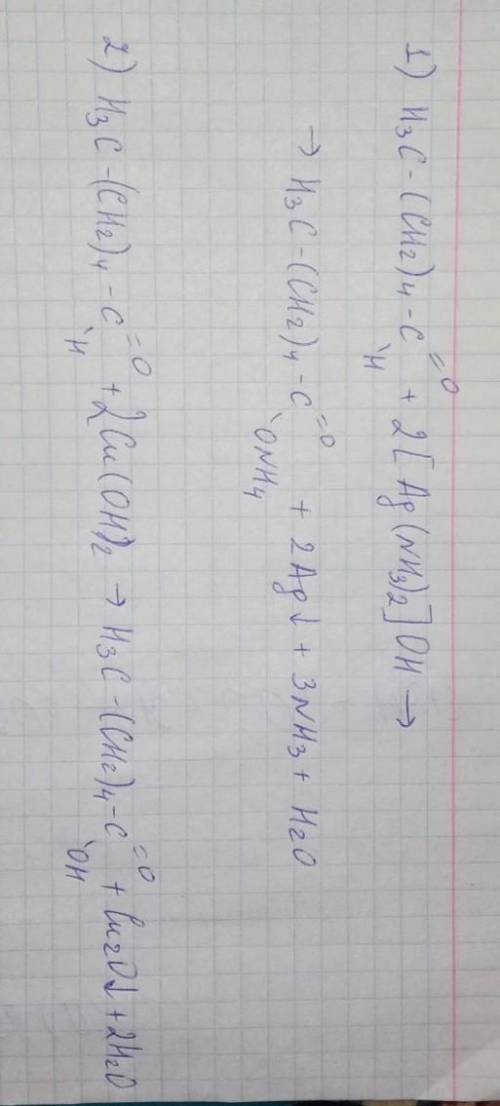 1) H₃C-(CH₂)₄-C=O 'H + 2[Ag(NH₃)₂]OH →
→ H₃C-(CH₂)₄-C=O 'ONH₄ + 2Ag↓ + 3NH₃ + H₂O
2) H₃C-(CH₂)₄-C=O 'H + 2Cu(OH)₂ → H₃C-(CH₂)₄-C=O 'OH + Cu₂O↓ + 2H₂O